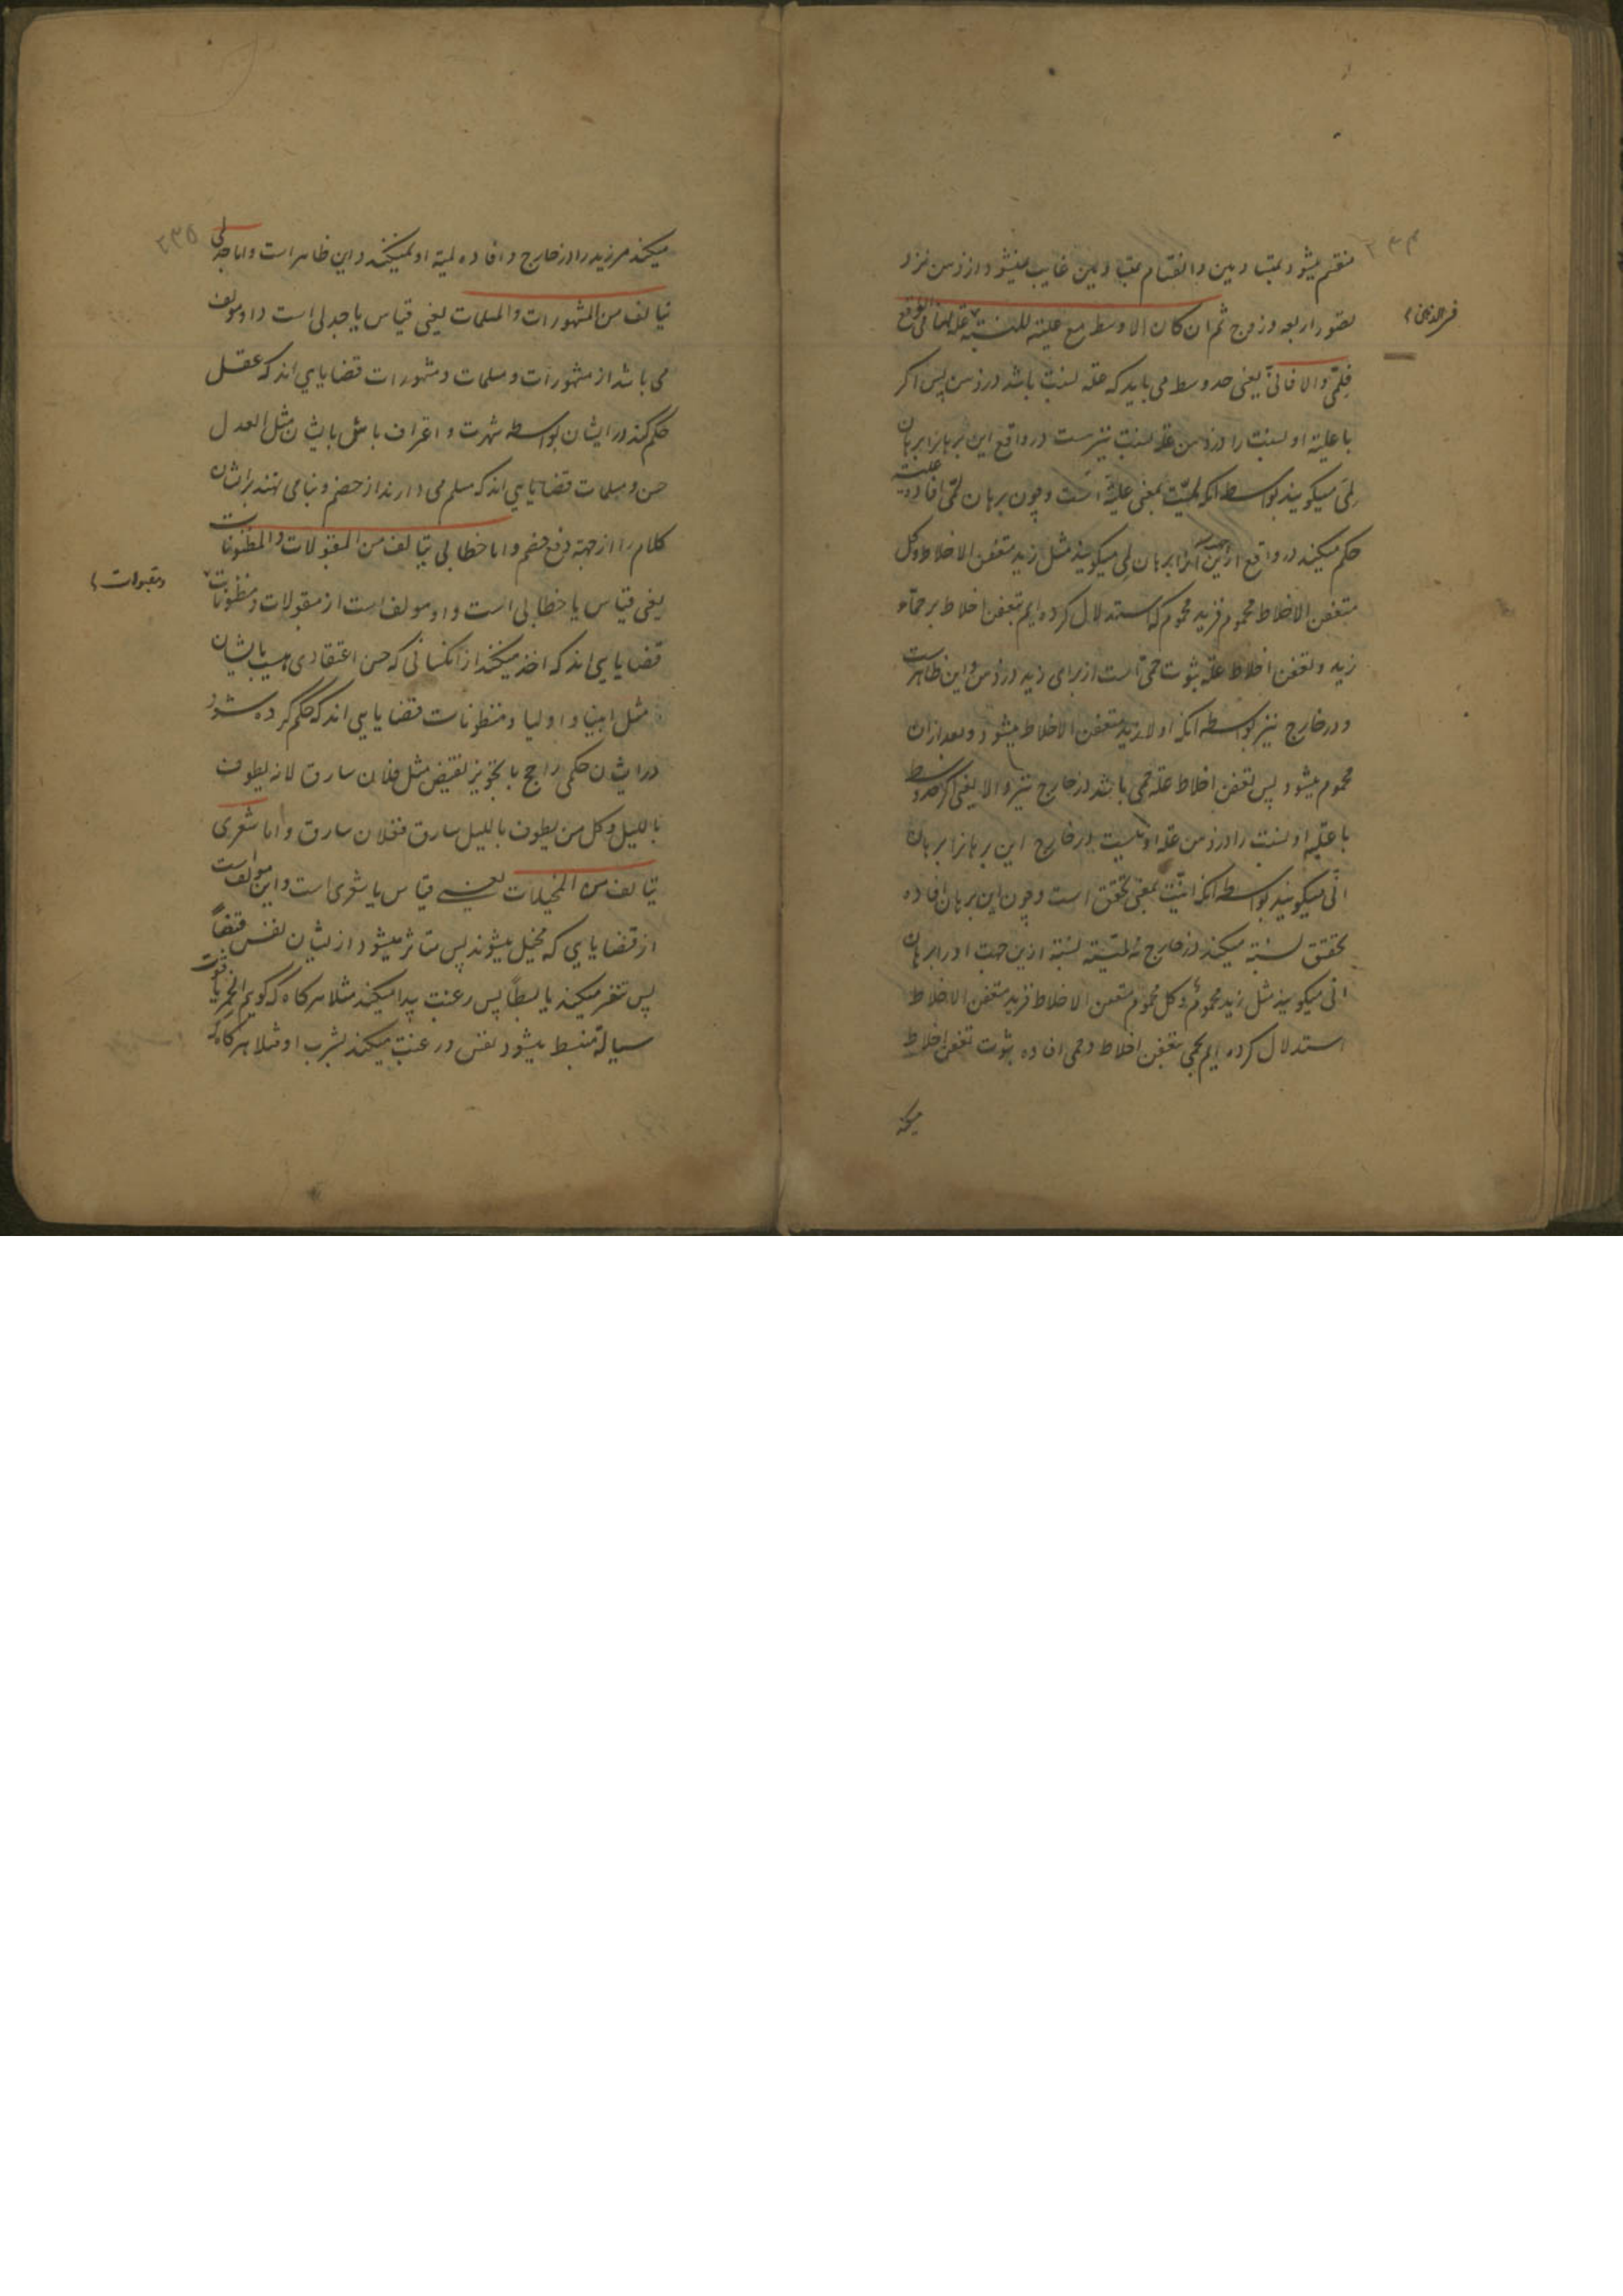 ۲۳۴
منقسم میشود بمتساویین و انقسام بمتساویین غایب نمیشود از ذهن نزد
تصور اربعه و زوج ثم ان کان الاوسط مع علیته للنسبة فی الذهن علة لها فی الواقع
فلمّی والا فانّی یعنی حد وسط می باید که علة نسبت باشد در ذهن پس اکر
با علیة او نسبت را در ذهن علة نسبت نیز هست در واقع این برهانرا برهان
لمّی میکویند بواسطه انکه لمیّت بمعنی علیة است و چون برهان لمّی افاده علیت
حکم میکند در واقع ازین جهت انرا برهان لمی میکویند مثل زید متعفن الاخلاط وکل
متعفن الاخلاط محموم فزید محموم که استدلال کرده ایم بتعفن اخلاط بر حماء
زید و تعفن اخلاط علة ثبوت حمی است از برای زید در ذهن و این ظاهرست
و در خارج نیز بواسطه انکه اولا زید متعفن الاخلاط میشود و بعد ازان
محموم میشود پس تعفن اخلاط علة حمی باشد در خارج نیز والا یعنی اکر حد وسط
با علیة او نسبت را در ذهن علة او نیست در خارج این برهانرا برهان
انّی میکویند بواسطه انکه انیّت بمعنی تحقق است و چون این برهان افاده
تحقق نسبة میکند در خارج نه لمیّة نسبة ازین جهت او را برهان
انّی میکویند مثل زید محموم وکل محموم متعفن الاخلاط فزید متعفن الاخلاط
استدلال کرده ایم بحمی بتعفن اخلاط و حمی افاده ثبوت تعفن اخلاط
میکند
۲۳۵
میکند مر زید را در خارج و افاده لمیة او نمیکند و این ظاهر است واما جدلی
یتالف من المشهورات والمسلمات یعنی قیاس یا جدلی است و او مولف
می باشد از مشهورات و مسلمات و مشهورات قضایایی اند که عقل
حکم کند در ایشان بواسطه شهرت و اعتراف باشان مثل العدل
حسن و مسلمات قضایایی اند که مسلم می دارند از خصم و بنا می نهند بر ایشان
کلام را از جهة دفع خصم واما خطابی یتالف من المقبولات والمظنونات
یعنی قیاس یا خطابی است و او مولف است از مقبولات و مظنونات
و مقبولات
قضایایی اند که اخذ میکنند از انکسانی که حسن اعتقادی هست بایشان
مثل انبیا و اولیا و مظنونات قضایایی اند که حکم کرده شود
در ایشان حکمی راجح با تجویز نقیض مثل فلان سارق لانه یطوف
باللیل وکل من یطوف باللیل سارق ففلان سارق واما شعری
یتالف من المخیلات یعنی قیاس یا شعری است و این مولف است
از قضایایی که مخیل میشوند پس متاثر میشود از ایشان نفس قبضاً
پس تنفر میکند یا بسطاً پس رغبت پیدا میکند مثلا هرکاه که کویم الخمر یاقوت
سیالة منبسط میشود نفس و رغبت میکند بشرب او مثلا هرکاه که